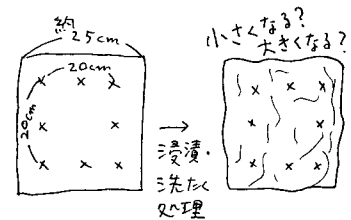 約
25cm
20cm
20cm
→
浸漬・
洗たく
処理
小さくなる?
大きくなる?